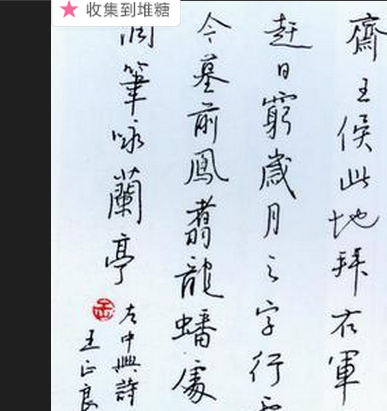 收集到堆糖
齋王侯此地拜右軍
赶日窮歲月之字行
今墓前鳳翥龍蟠處
筆咏蘭亭
左中興詩
王正良